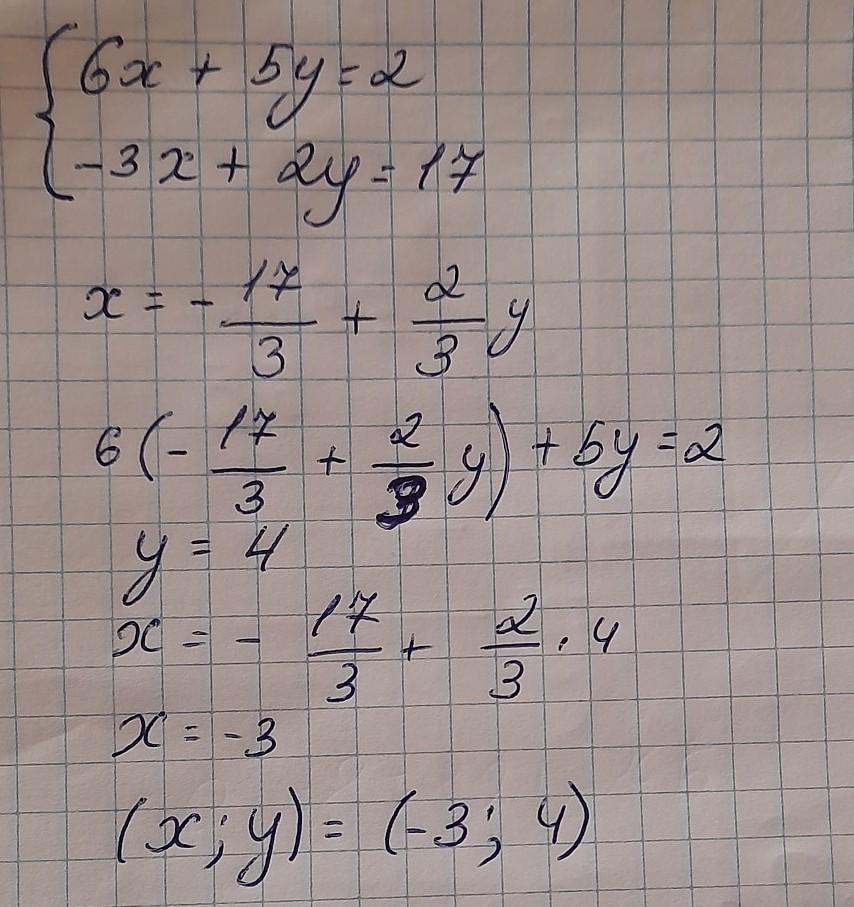 { 6x + 5y = 2
-3x + 2y = 17
x = - 17/3 + 2/3 y
6 (- 17/3 + 2/3 y) + 5y = 2
y = 4
x = - 17/3 + 2/3 · 4
x = -3
(x; y) = (-3; 4)